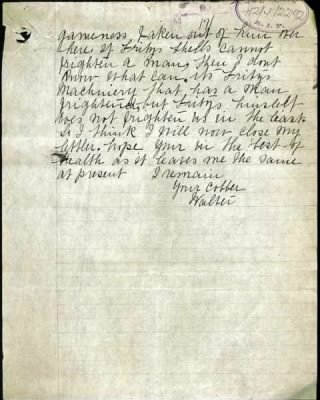 11/
12/11/2292
gameness, taken out of him over
there if Fritys shells cannot
frighten a man, then I dont
know what can, its Fritys
Machinery that has a man
frightened, but Fritys himself
does not frighten us in the least
so I think I will now close my
letter. hope your in the best of
health as it leaves me the same
at present I remain
Your Cobber
Walter